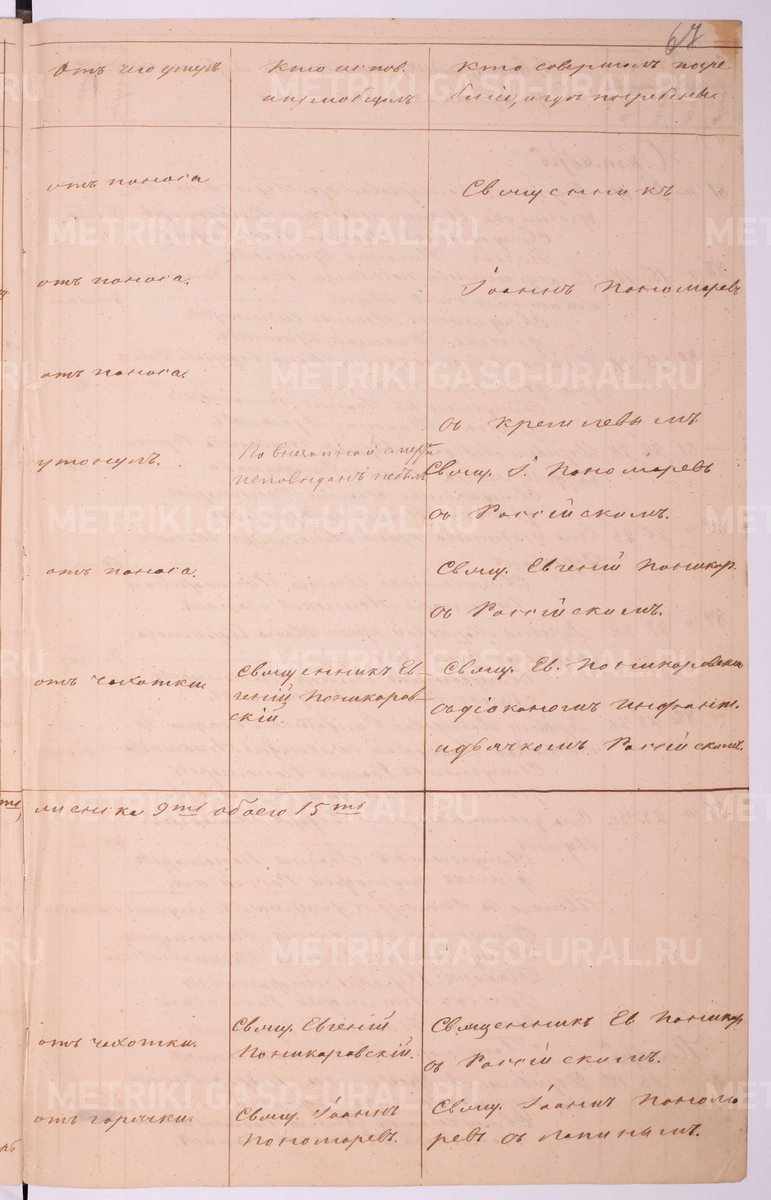 67
Отъ чего умеръ
Кто испов.
и пріобщалъ
Кто совершалъ погре
беніе, и гдѣ погребены.
отъ поноса
Священникъ
отъ поноса.
Іоаннъ Пономаревъ
отъ поноса.
съ Кремлевымъ
утонулъ.
По внезапной смерти
исповѣданъ небылъ
Свящ. І. Пономаревъ
съ Россійскимъ.
отъ поноса.
Свящ. Евгеній Поникар.
съ Россійскимъ.
отъ чахотки.
Священникъ Ев-
геній Поникаров-
скій.
Свящ. Ев. Поникаровскій
съ діакономъ Инфант.
и дьячкомъ Россійскимъ.
9ть обоего 15ть
отъ чахотки.
Свящ. Евгеній
Поникаровскій.
Священникъ Ев Поникар
съ Россійскимъ.
отъ горячки.
Свящ. Іоаннъ
Пономаревъ.
Свящ. Іоаннъ Понома
ревъ съ Лапинымъ.
METRIKI.GASO-URAL.RU